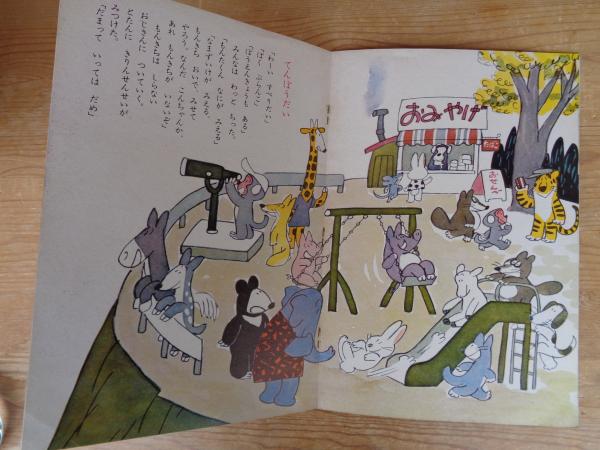 てんぼうだい
「わーい すべりだい」
「ぼー ぶらんこ」
「ぼうえんきょうも ある」
みんなは わっと ちった。
「もんたくん なにが みえる」
「なまずいけが みえる」
もんきち おいで、みせて
やろう。なんだ こんちゃんか、
あれ もんきちが いないぞ」
もんきちは しらない
おじさんに ついていく。
とたんに きりんせんせいが
みつけた。
「だまって いっては だめ」
おみやげ
たばこ
おせんべ